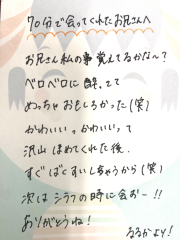 70分で会ってくれたお兄さんへ
お兄さん私の事覚えてるかな〜?
ベロベロに酔ってて
めっちゃおもしろかった(笑)
かわいいっかわいいって
沢山ほめてくれた後、
すぐばくすいしちゃうから(笑)
次はシラフの時に会おー!!
ありがとうね!
るるかより!